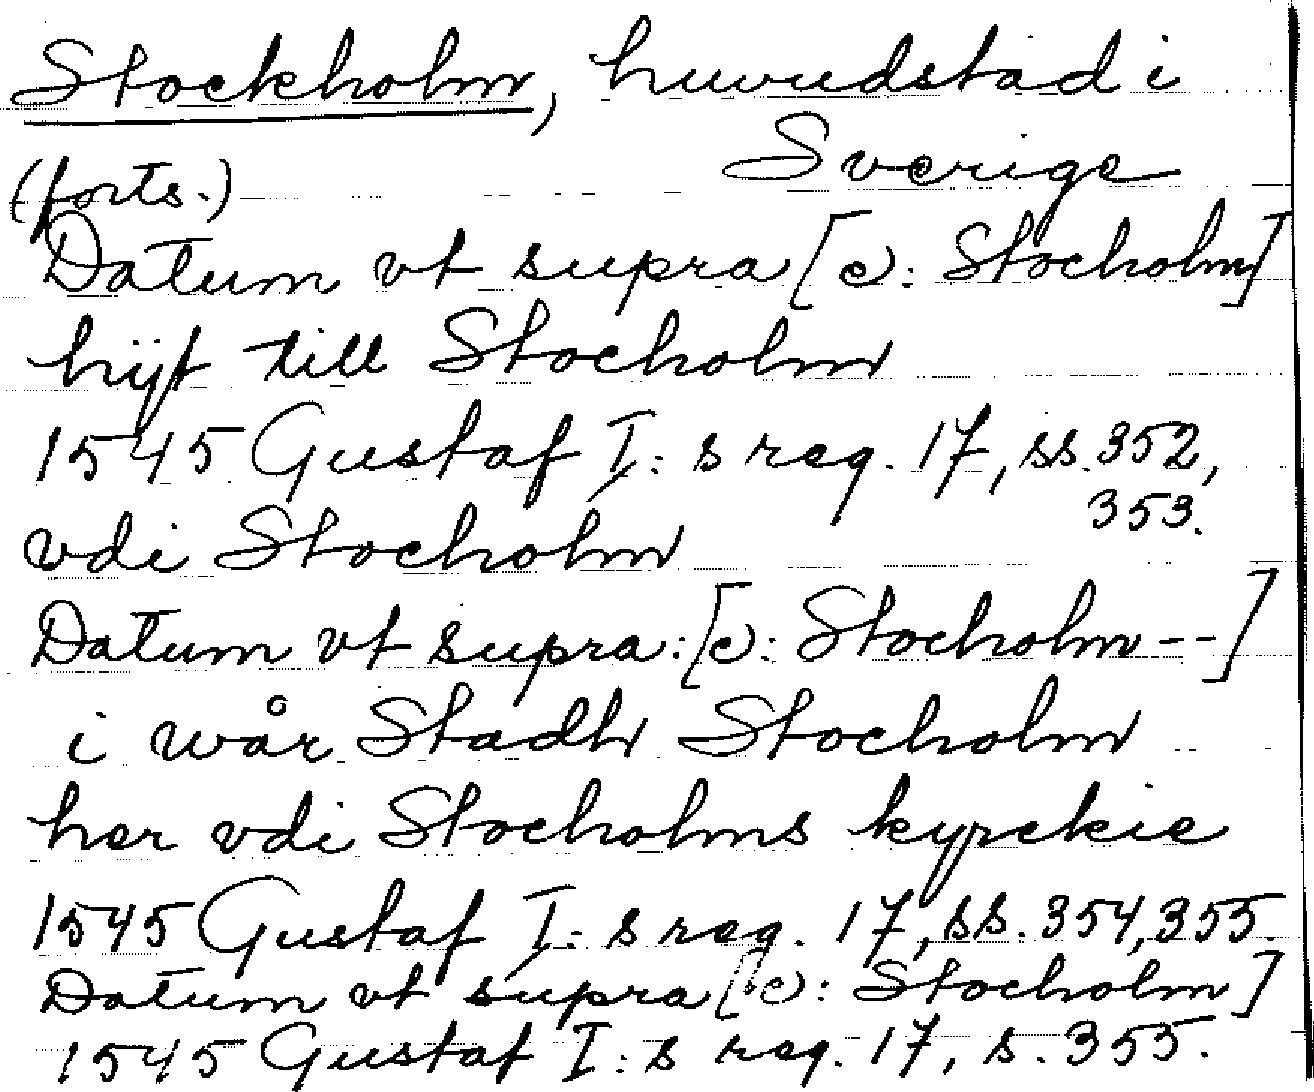 Stockholm, huvudstad i
Sverige
(forts.)
Datum vt supra [ɔ: Stocholm]
hijt till Stocholm
1545 Gustaf I: s reg. 17, ss. 352,
353.
vdi Stocholm
Datum vt supra: [ɔ: Stocholm--]
i wår Stadh Stocholm
her vdi Stocholms kyrckie
1545 Gustaf I: s reg. 17, ss. 354, 355.
Datum vt supra [ɔ: Stocholm]
1545 Gustaf I: s reg. 17, s. 355.